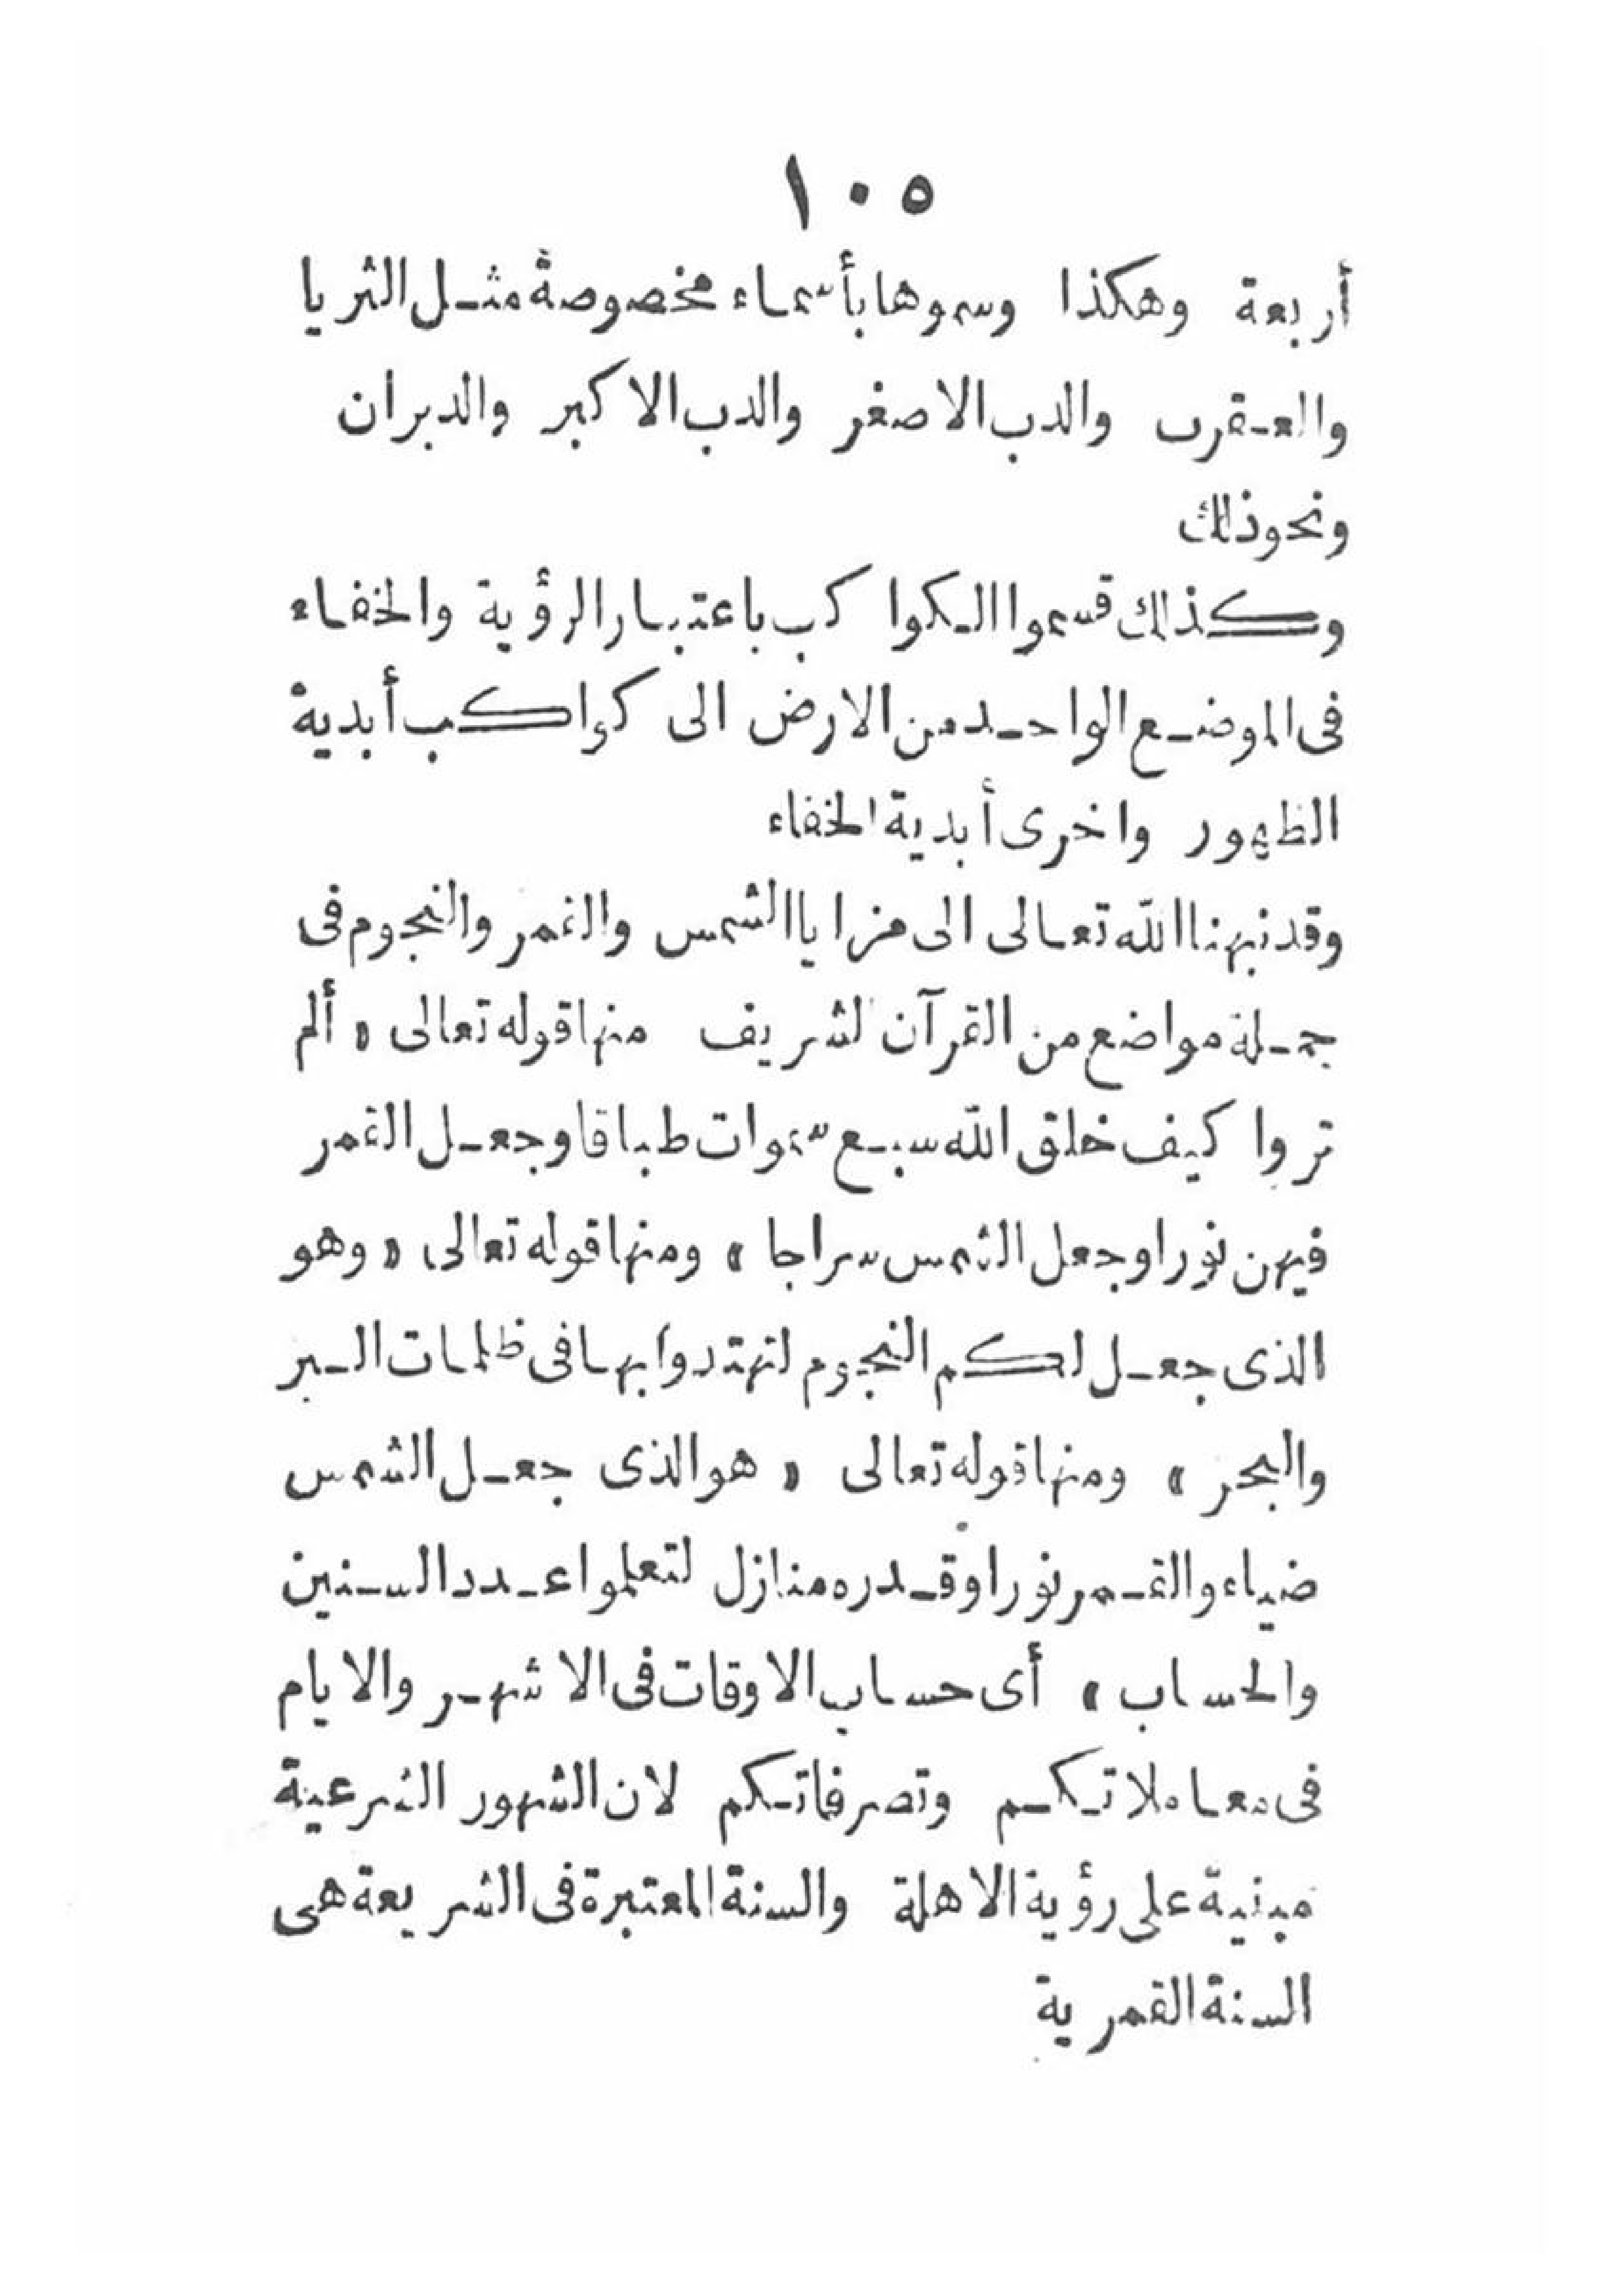 ١٠٥
أربعة وهكذا وسموها بأسماء مخصوصة مثل الثريا
والعقرب والدب الاصغر والدب الاكبر والدبران
ونحو ذلك
وكذلك قسموا الكواكب باعتبار الرؤية والخفاء
فى الموضع الواحد من الارض الى كواكب أبدية
الظهور واخرى أبدية الخفاء
وقد نبهنا الله تعالى الى مزايا الشمس والقمر والنجوم فى
جملة مواضع من القرآن الشريف منها قوله تعالى « ألم
تروا كيف خلق الله سبع سموات طباقا وجعل القمر
فيهن نورا وجعل الشمس سراجا » ومنها قوله تعالى « وهو
الذى جعل لكم النجوم لتهتدوا بها فى ظلمات البر
والبحر » ومنها قوله تعالى « هو الذى جعل الشمس
ضياء والقمر نورا وقدره منازل لتعلموا عدد السنين
والحساب » أى حساب الاوقات فى الاشهر والايام
فى معاملاتكم وتصرفاتكم لان الشهور الشرعية
مبنية على رؤية الاهلة والسنة المعتبرة فى الشريعة هى
السنة القمرية